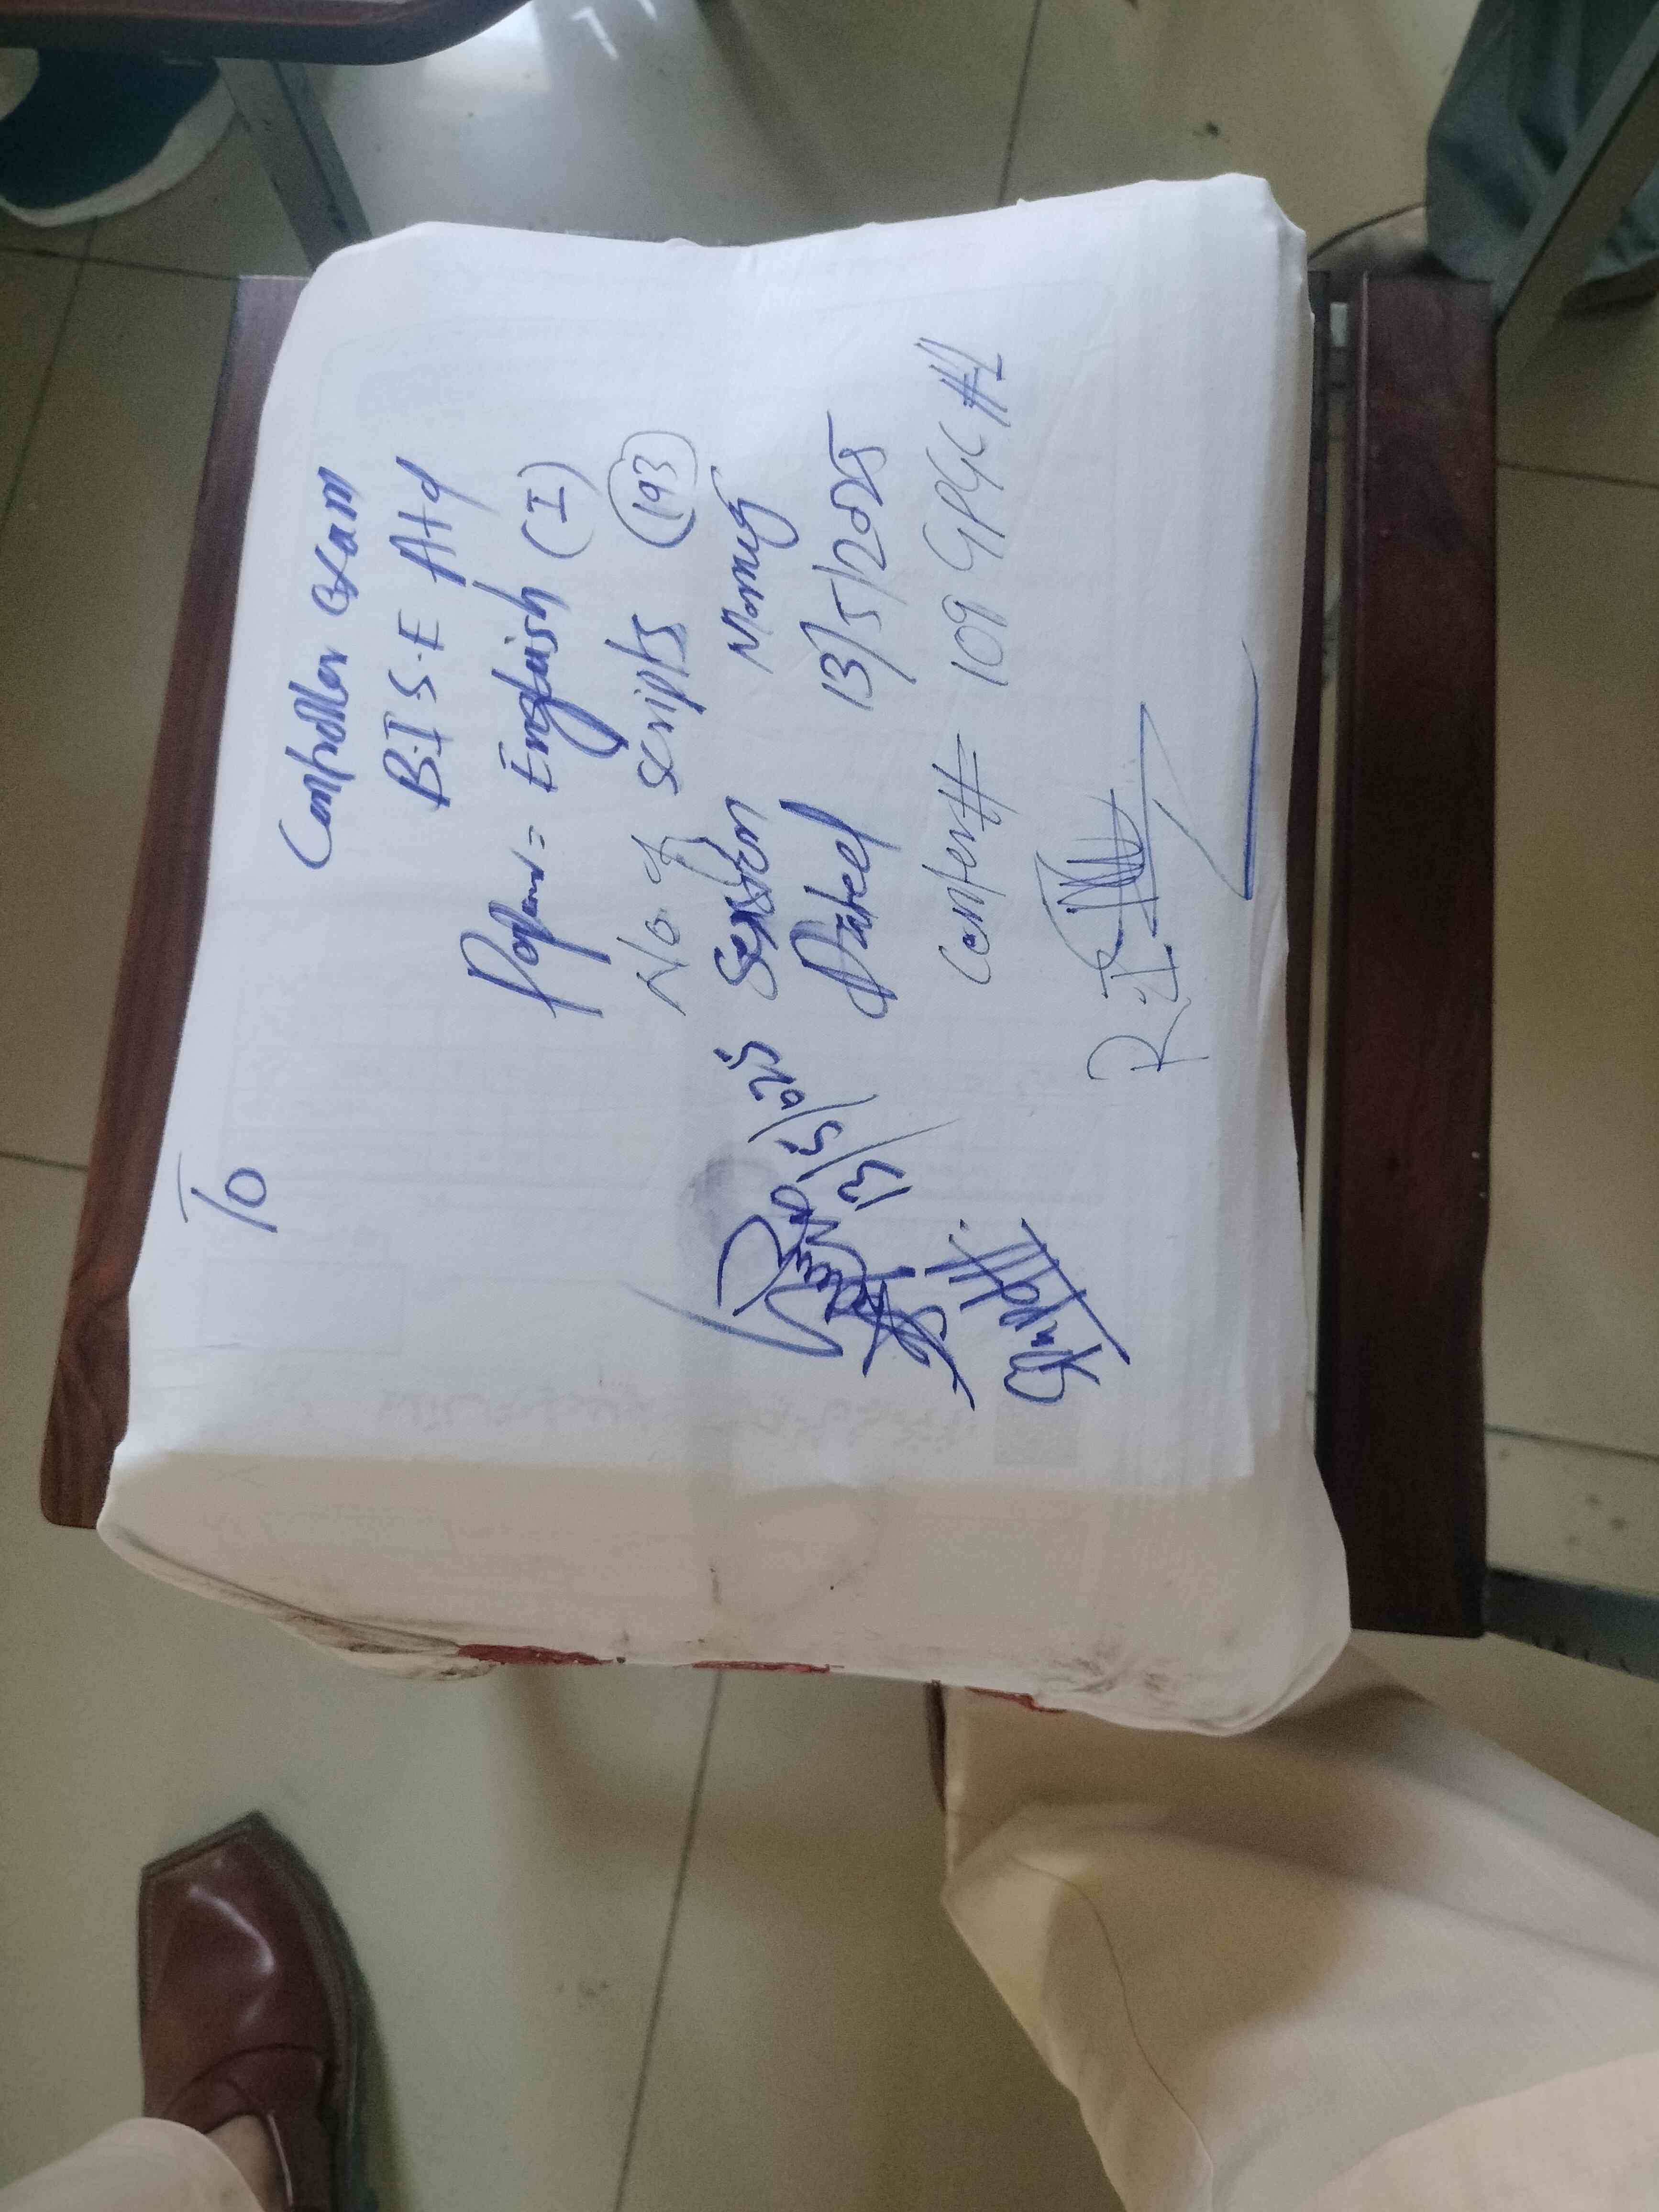 To
Controller Exam
B.I.S.E Atd
Paper = English (I)
No. of scripts (193)
Session Morning
Dated 13/5/2025
Center# 109 GPGC #1
13/5/025
13/5/
R.I